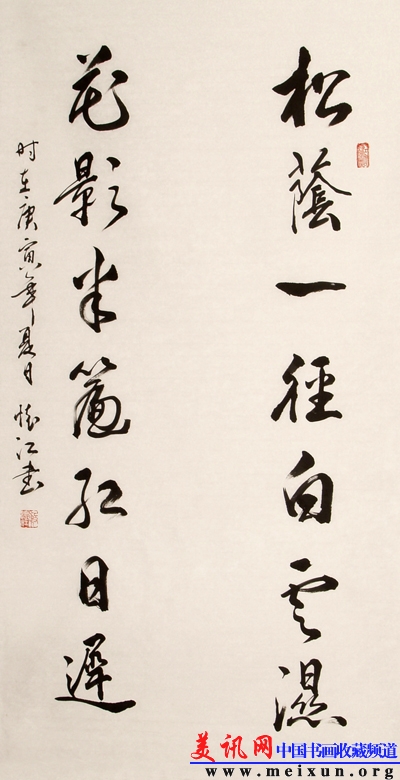 松蔭一徑白雲濕
花影半簾紅日遲
时在庚寅年夏日 怀江书
美讯网 中国书画收藏频道
www.meixun.org